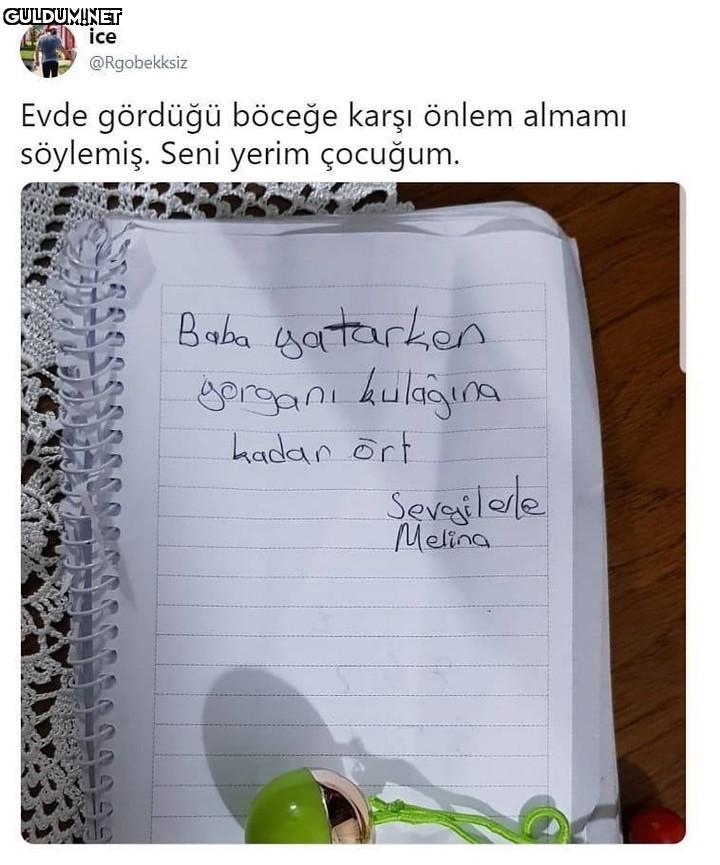 GULDUM.NET
ice
@Rgobekksiz
Evde gördüğü böceğe karşı önlem almamı
söylemiş. Seni yerim çocuğum.
Baba yatarken
yorganı kulağına
kadar ört
Sevgilerle
Melina